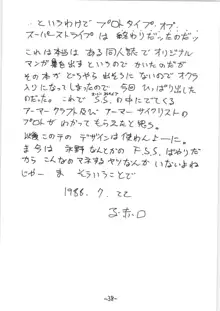 というわけで プロトタイプ・オブ・
スーパーストライプ は 終わりだったのだッ
これは本当は ある同人誌で オリジナル
マンガ集を出すというので かいたのだが
その本が どうやら出そうにないので オクラ
入りになってしまったので 今回 ひっぱり出した
のだった。これで S.S.の中にでてくる
アーマークラフト及び アーマーサイクリストの
プロトが わかってもらえたと思う。
以後 この デザインは使わんよーに。
ま 今は 永野なんとかの F.S.S.ばやりだ
から こんなのマネするヤツなんか いないよね
じゃー ま そういうことで
1986.7.22
-38-